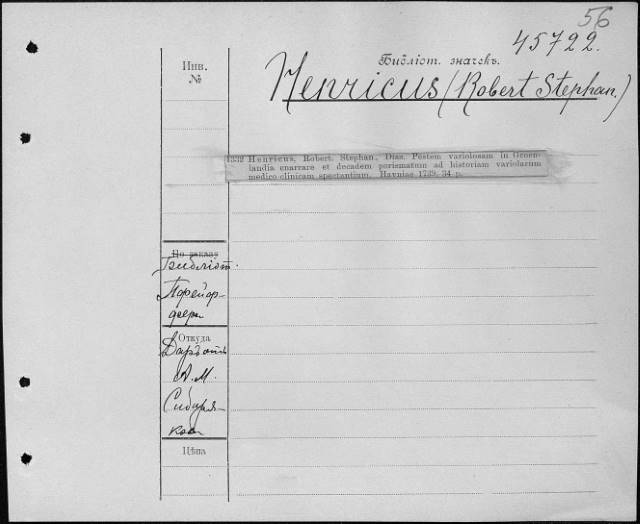 56
45722.
Инв.
№
Библіот. значекъ.
Henricus (Robert Stephan.)
1332 Henricus, Robert. Stephan. Diss. Pestem variolosam in Groen-
landia enarrare et decadem porismatum ad historiam variolarum
medico-clinicam spectantium. Havniae 1739. 34 p.
По заказу
Библіот.
Пфейф-
фера
Откуда
Даръ отъ
А. М.
Сибиря-
кова
Цѣна